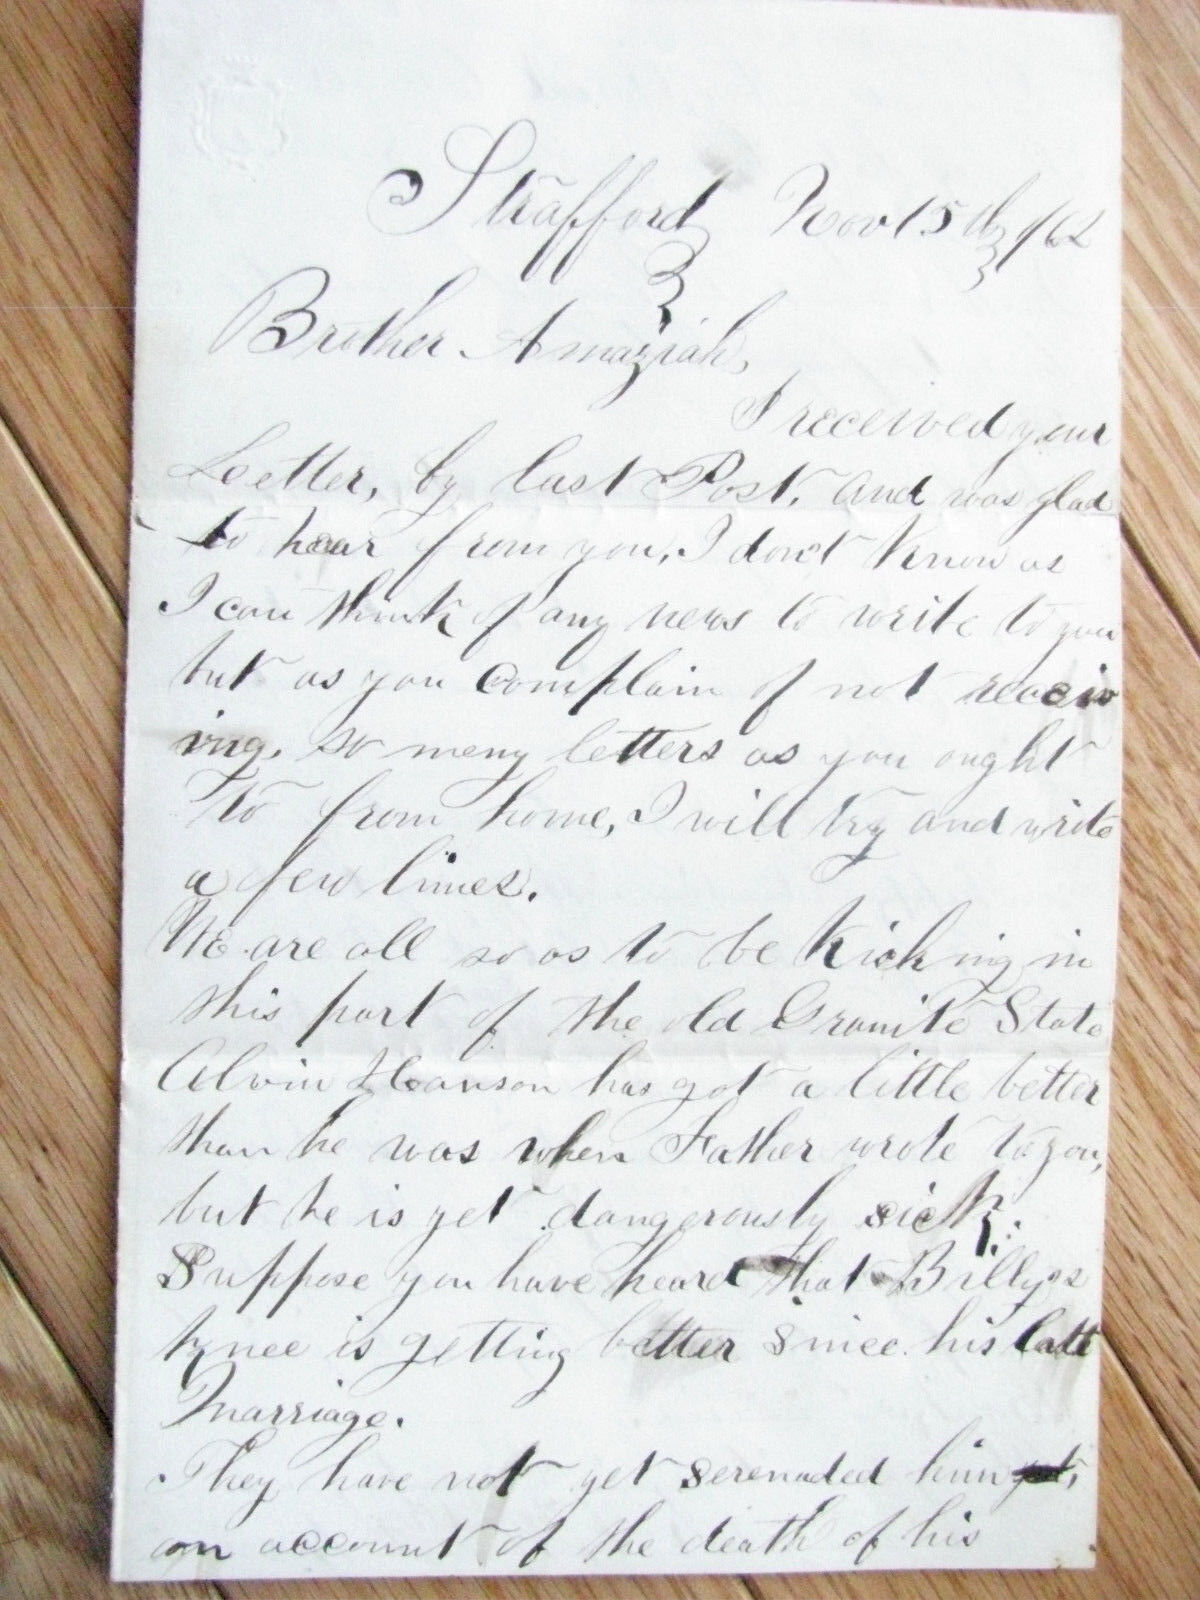 Strafford Nov 15th /62
Brother Amaziah,
I received your
Letter, by last Post, and was glad
to hear from you, I don't know as
I can think of any news to write to you
but as you complain of not receiv
ing, so meny letters as you ought
to from home, I will try and write
a few lines.
We are all so as to be kicking in
this part of the old Granite State
Alvin Hanson has got a little better
than he was when Father wrote to you,
but he is yet dangerously sick.
Suppose you have heard that Billy's
knee is getting better since his late
Marriage.
They have not yet serenaded him
on account of the death of his